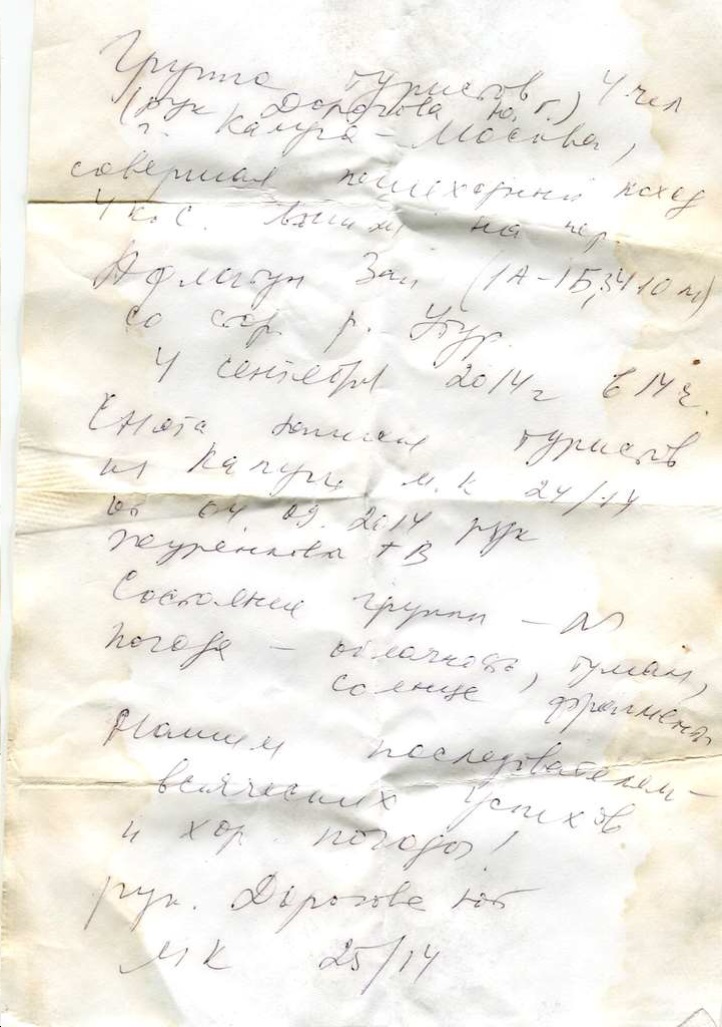 Группа туристов, 4 чел
(рук Дорогова Ю. Г.)
г. Калуга - Москва,
совершая пешеходный поход
4 к. с. вышли на пер.
Афлатун Зап (1А-1Б, 3410 м)
со стор р. Утур.
4 сентября 2014 г в 14 ч.
Снята записка туристов
из Калуги м. к 24/14
от 04. 09. 2014 рук
Журенкова Т В
Состояние группы - N
Погода - облачность, туман,
солнце фрагменты
Нашим последователям -
всяческих успехов
и хор. погоды!
рук. Дорогова ЮГ
МК 25/14